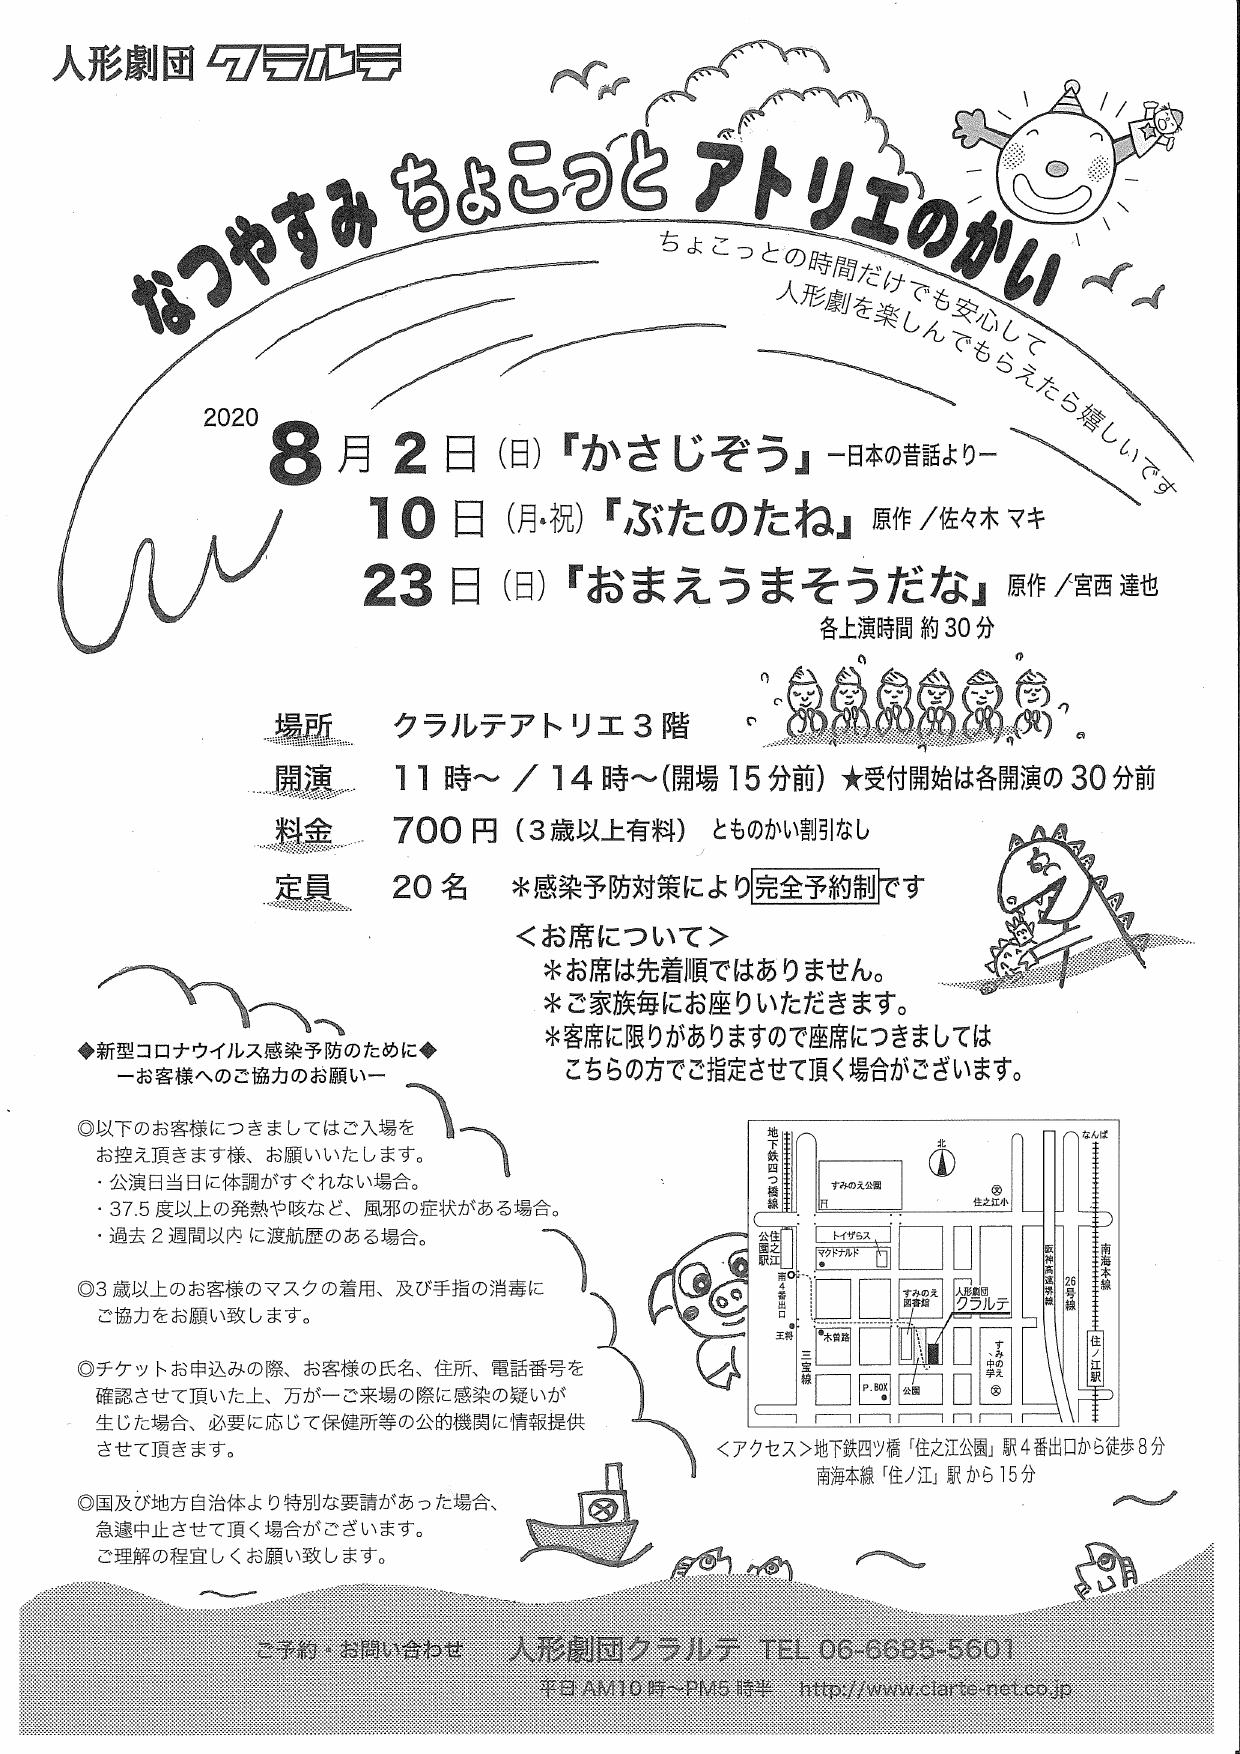 人形劇団 クラルテ
なつやすみ ちょこっと アトリエのかい
ちょこっとの時間だけでも安心して
人形劇を楽しんでもらえたら嬉しいです
2020
8月2日(日)『かさじぞう』ー日本の昔話よりー
10日(月・祝)『ぶたのたね』原作/佐々木 マキ
23日(日)『おまえうまそうだな』原作/宮西 達也
各上演時間 約30分
場所 クラルテアトリエ3階
開演 11時〜/14時〜(開場15分前) ★受付開始は各開演の30分前
料金 700円(3歳以上有料) とものかい割引なし
定員 20名 *感染予防対策により完全予約制です
<お席について>
*お席は先着順ではありません。
*ご家族毎にお座りいただきます。
*客席に限りがありますので座席につきましては
こちらの方でご指定させて頂く場合がございます。
◆新型コロナウイルス感染予防のために◆
ーお客様へのご協力のお願いー
◎以下のお客様につきましてはご入場を
お控え頂きます様、お願いいたします。
・公演日当日に体調がすぐれない場合。
・37.5度以上の発熱や咳など、風邪の症状がある場合。
・過去2週間以内に渡航歴のある場合。
◎3歳以上のお客様のマスクの着用、及び手指の消毒に
ご協力をお願い致します。
◎チケットお申込みの際、お客様の氏名、住所、電話番号を
確認させて頂いた上、万が一ご来場の際に感染の疑いが
生じた場合、必要に応じて保健所等の公的機関に情報提供
させて頂きます。
◎国及び地方自治体より特別な要請があった場合、
急遽中止させて頂く場合がございます。
ご理解の程宜しくお願い致します。
地下鉄四つ橋線
北
なんば
すみのえ公園
文
住之江小
住之江公園駅
トイザらス
マクドナルド
南4番出口
王将
木曽路
三宝線
すみのえ図書館
人形劇団
クラルテ
P.BOX
公園
すみのえ中学
文
阪神高速堺線
26号線
南海本線
住ノ江駅
<アクセス>地下鉄四ツ橋「住之江公園」駅4番出口から徒歩8分
南海本線「住ノ江」駅から15分
ご予約・お問い合わせ 人形劇団クラルテ TEL 06-6685-5601
平日AM10時〜PM5時半 http://www.clarte-net.co.jp